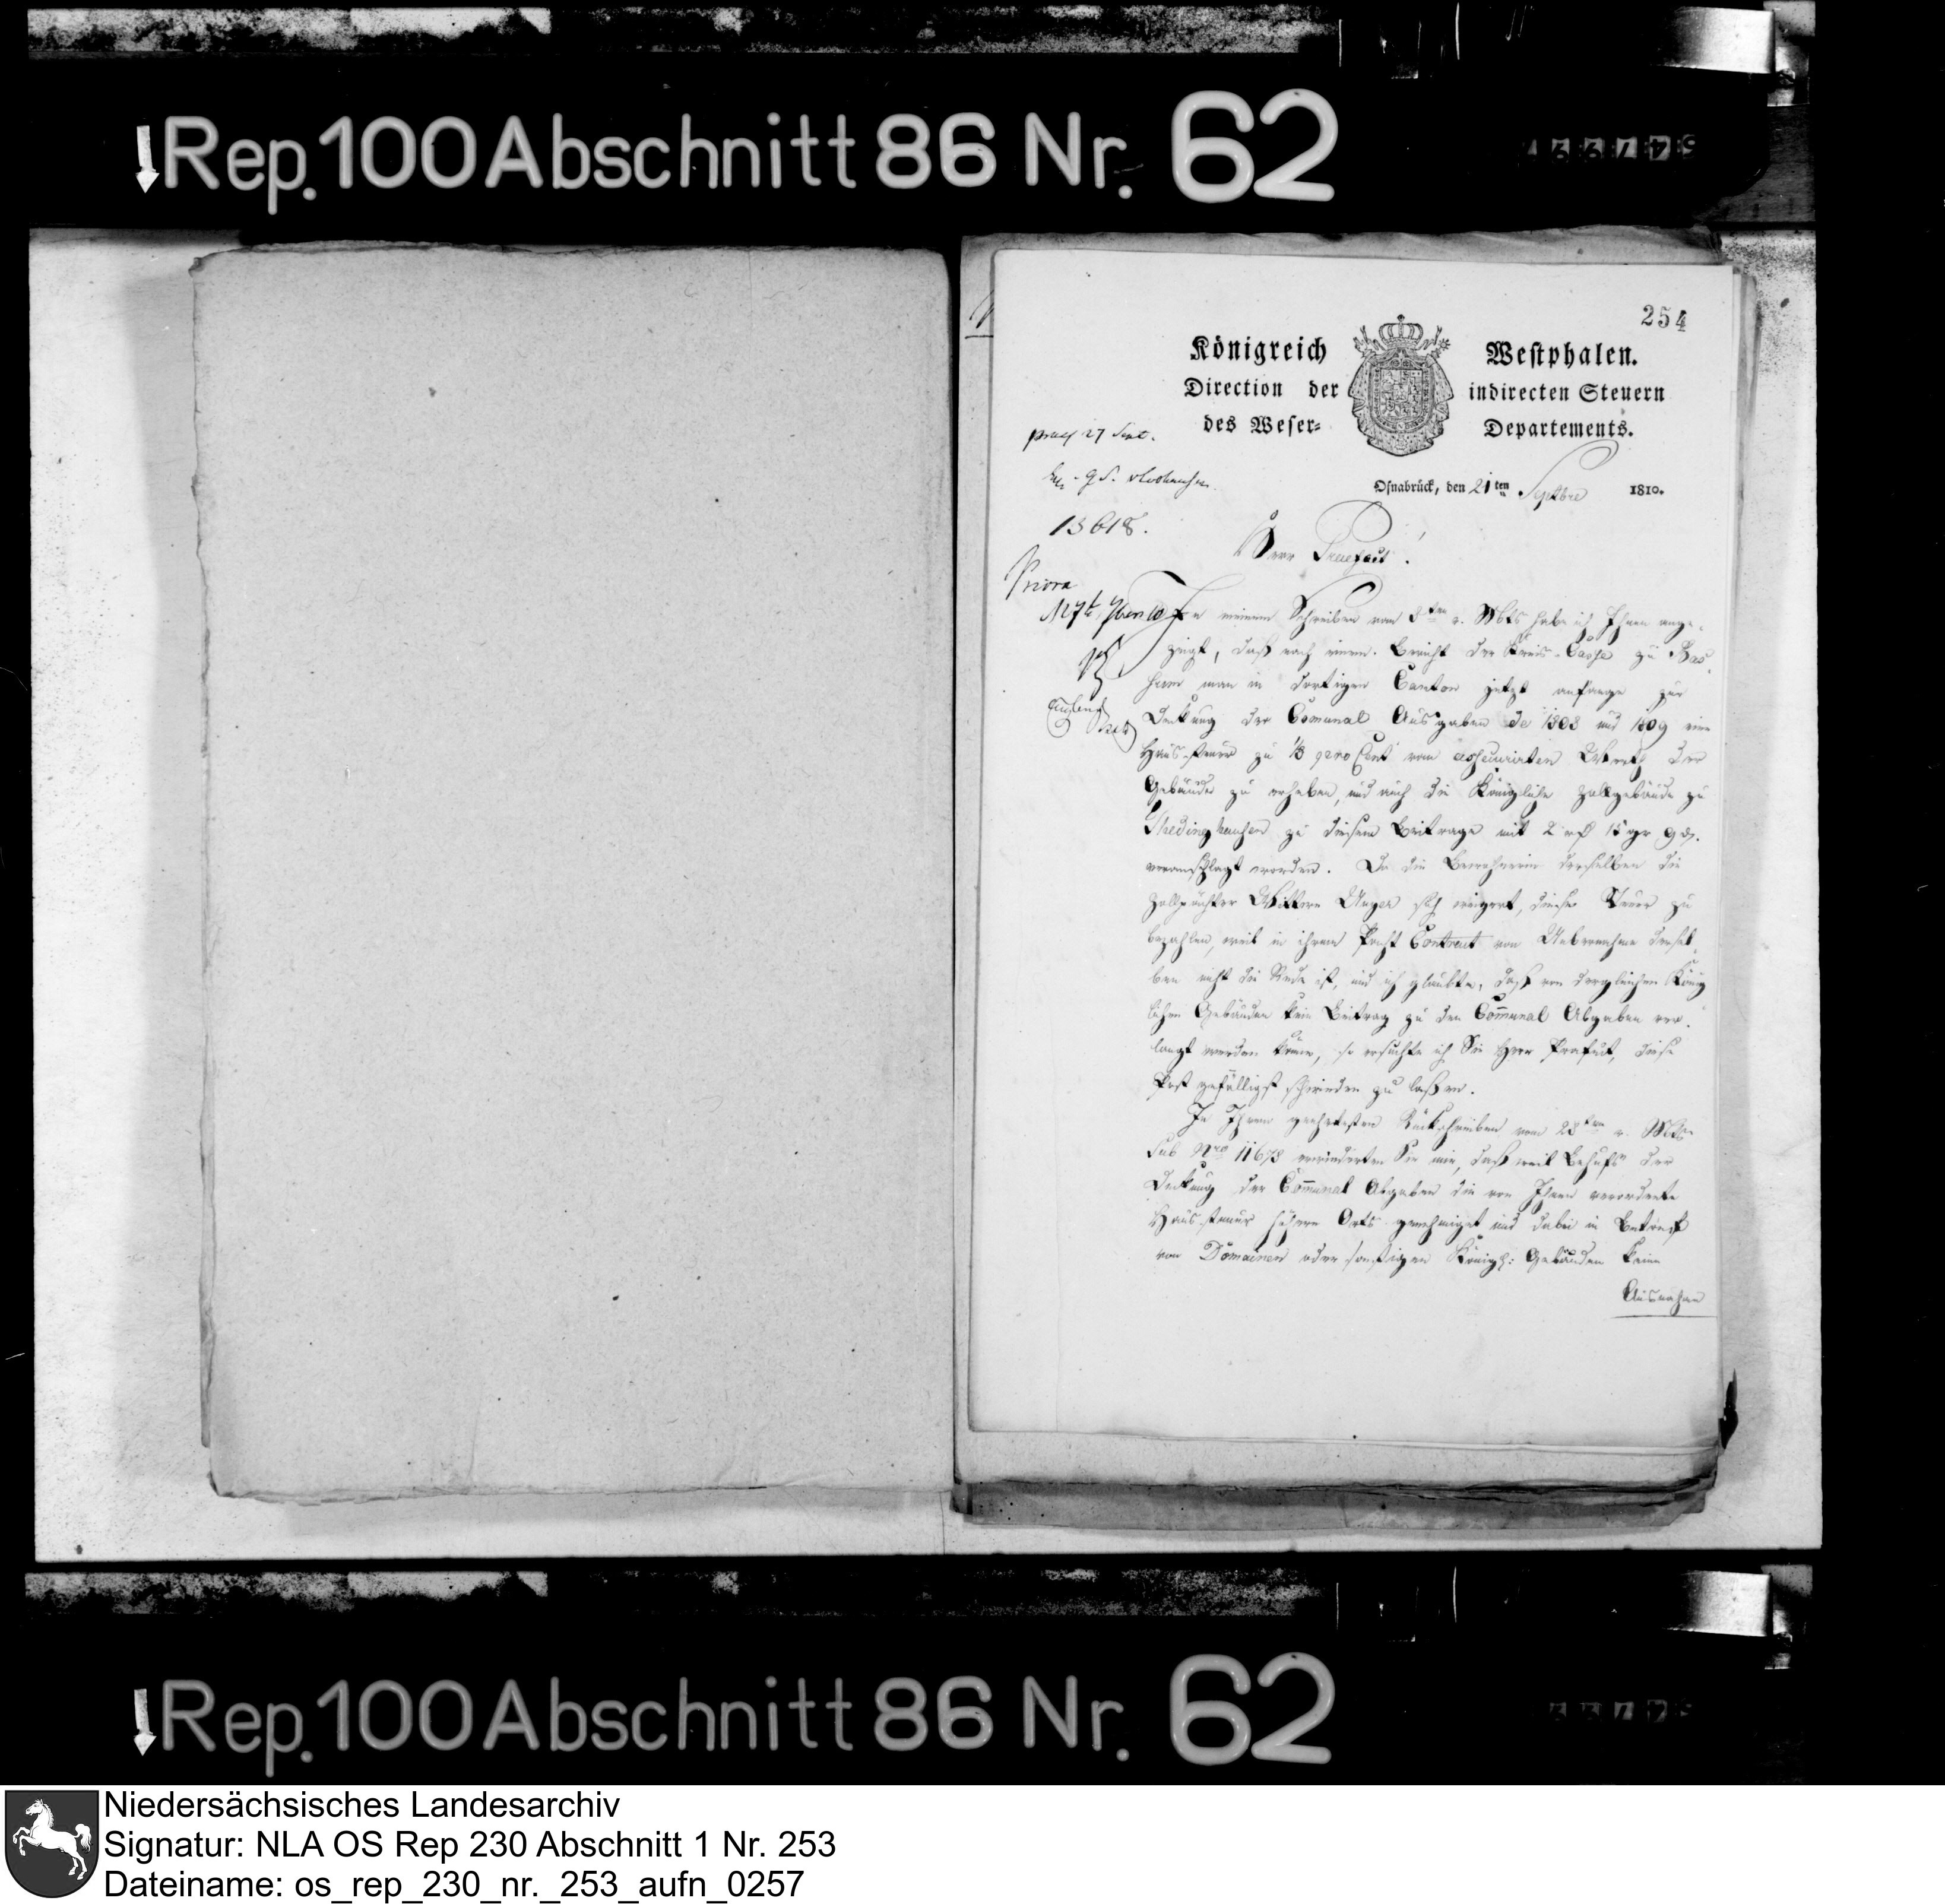 Rep. 100 Abschnitt 86 Nr. 62
254
Königreich Westphalen.
Direction der indirecten Steuern
des Weser- Departements.
praes 27 Sept.
Osnabrück, den 21ten Septbre 1810.
13618.
Herr Praefect!
Priora
In meinem Schreiben vom 8ten v. Mts habe ich Ihnen ange-
zeigt, daß nach einem Bericht der Kreis-Casse zu Bas-
sum man in dortigen Canton jetzt anfange zur
Deckung der Comunal Ausgaben de 1808 und 1809 eine
Haussteuer zu 1/3 pero Cent vom assecurirten Werth der
Gebäude zu erheben, und auch die Königliche Zollgebäude zu
Thedinghausen zu diesem Beitrage mit 2 rth 15 gr 9 d.
veranschlagt worden. Da die Bewohnerin derselben die
Zollpächter Wittwe Unger sich weigert, diese Steuer zu
bezahlen, weil in ihrem Pacht Contract von Uebernahme dersel-
ben nicht die Rede ist, und ich glaubte, daß von dergleichen König
lichen Gebäuden kein Beitrag zu den Com̄unal Abgaben ver-
langt werden könne, so ersuchte ich Sie Herr Präfect, diese
Post gefälligst schwinden zu laßen.
In Ihrem geehrtesten Rückschreiben vom 28ten v. Mts
sub Nro 11678 erwiderten Sie mir, daß weil Behufs der
Deckung der Com̄unal Abgaben die von Ihnen verordnete
Haussteuer höhern Orts genehmiget und dabei in Betreff
von Domainen oder sonstigen Königl: Gebäuden keine
Ausnahme
Rep. 100 Abschnitt 86 Nr. 62
Niedersächsisches Landesarchiv
Signatur: NLA OS Rep 230 Abschnitt 1 Nr. 253
Dateiname: os_rep_230_nr._253_aufn_0257